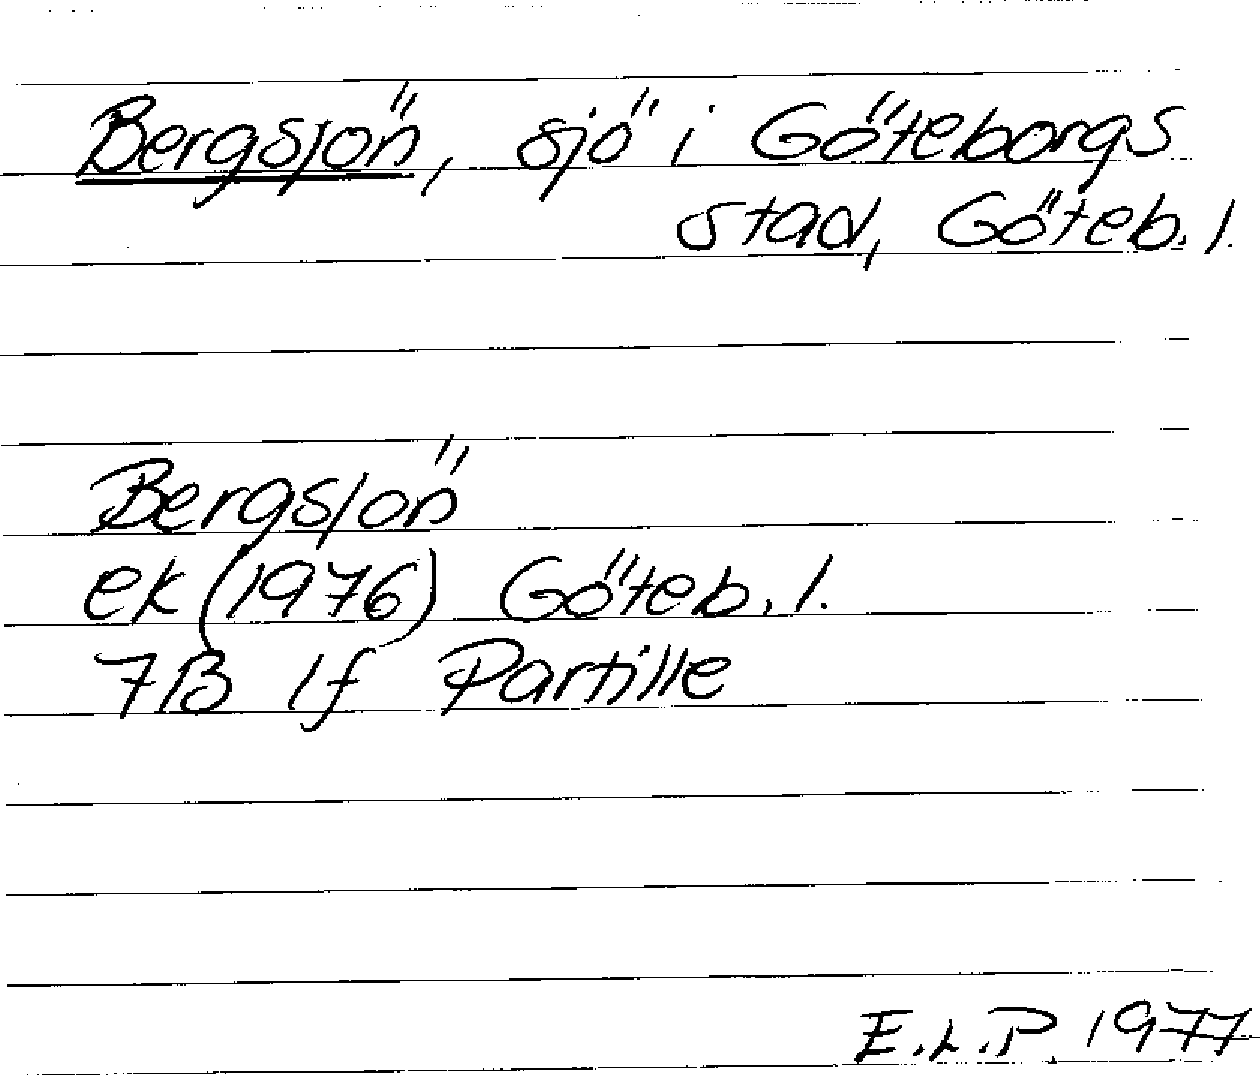 Bergsjön, sjö i Göteborgs
stad, Göteb. l.
Bergsjön
ek (1976) Göteb. l.
7B lf Partille
E.L.P. 1977